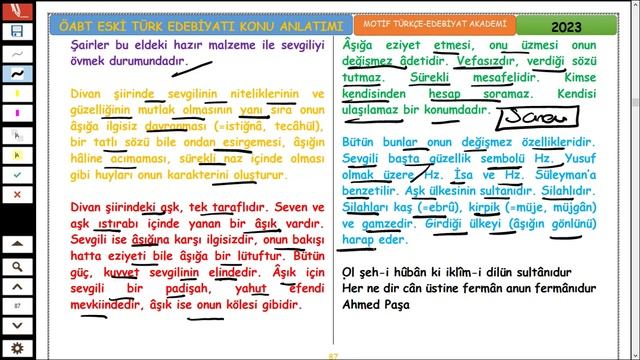 ÖABT ESKİ TÜRK EDEBİYATI KONU ANLATIMI
MOTİF TÜRKÇE-EDEBİYAT AKADEMİ
2023
Şairler bu eldeki hazır malzeme ile sevgiliyi
övmek durumundadır.
Divan şiirinde sevgilinin niteliklerinin ve
güzelliğinin mutlak olmasının yanı sıra onun
âşığa ilgisiz davranması (=istiğnâ, tecâhül),
bir tatlı sözü bile ondan esirgemesi, âşığın
hâline acımaması, sürekli naz içinde olması
gibi huyları onun karakterini oluşturur.
Divan şiirindeki aşk, tek taraflıdır. Seven ve
aşk ıstırabı içinde yanan bir âşık vardır.
Sevgili ise âşığına karşı ilgisizdir, onun bakışı
hatta eziyeti bile âşığa bir lütuftur. Bütün
güç, kuvvet sevgilinin elindedir. Âşık için
sevgili bir padişah, yahut efendi
mevkiindedir, âşık ise onun kölesi gibidir.
Âşığa eziyet etmesi, onu üzmesi onun
değişmez âdetidir. Vefasızdır, verdiği sözü
tutmaz. Sürekli mesafelidir. Kimse
kendisinden hesap soramaz. Kendisi
ulaşılamaz bir konumdadır.
Bütün bunlar onun değişmez özellikleridir.
Sevgili başta güzellik sembolü Hz. Yusuf
olmak üzere Hz. İsa ve Hz. Süleyman'a
benzetilir. Aşk ülkesinin sultanıdır. Silahlıdır.
Silahları kaş (=ebrû), kirpik (=müje, müjgân)
ve gamzedir. Girdiği ülkeyi (âşığın gönlünü)
harap eder.
Ol şeh-i hûbân ki iklîm-i dilün sultânıdur
Her ne dir cân üstine fermân anun fermânıdur
Ahmed Paşa
87
87